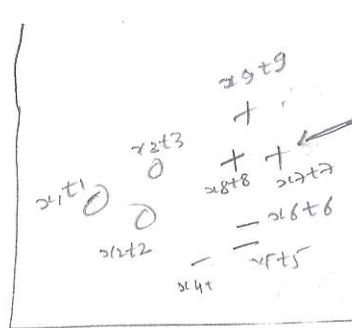 x9t9
x2t3
x8t8
x7t7
x1t1
x6t6
x2t2
x5t5
x4t